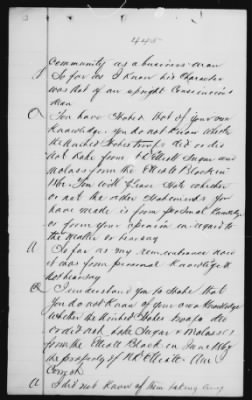 445
community as a business man
So far as I know his character
was that of an upright Conscientious
man
Q You have stated that of your own
knowledge you do not know whether
the United States troops did or did
not take from Elliott Sugar and
Molasses from the Elliott Block in
You will please state whether
or not the other Statements you
have made is from personal knowledge
or from your opinion in regard to
the matter or hearsay
A So far as my remembrance does
it was from personal knowledge &
not hearsay
Q I understand you to state that
you do not know of your own knowledge
whether the United States troops did
or did not take Sugar & Molasses
from the Elliott Block in June 1863
the property of Elliott
A I did not know of them taking any